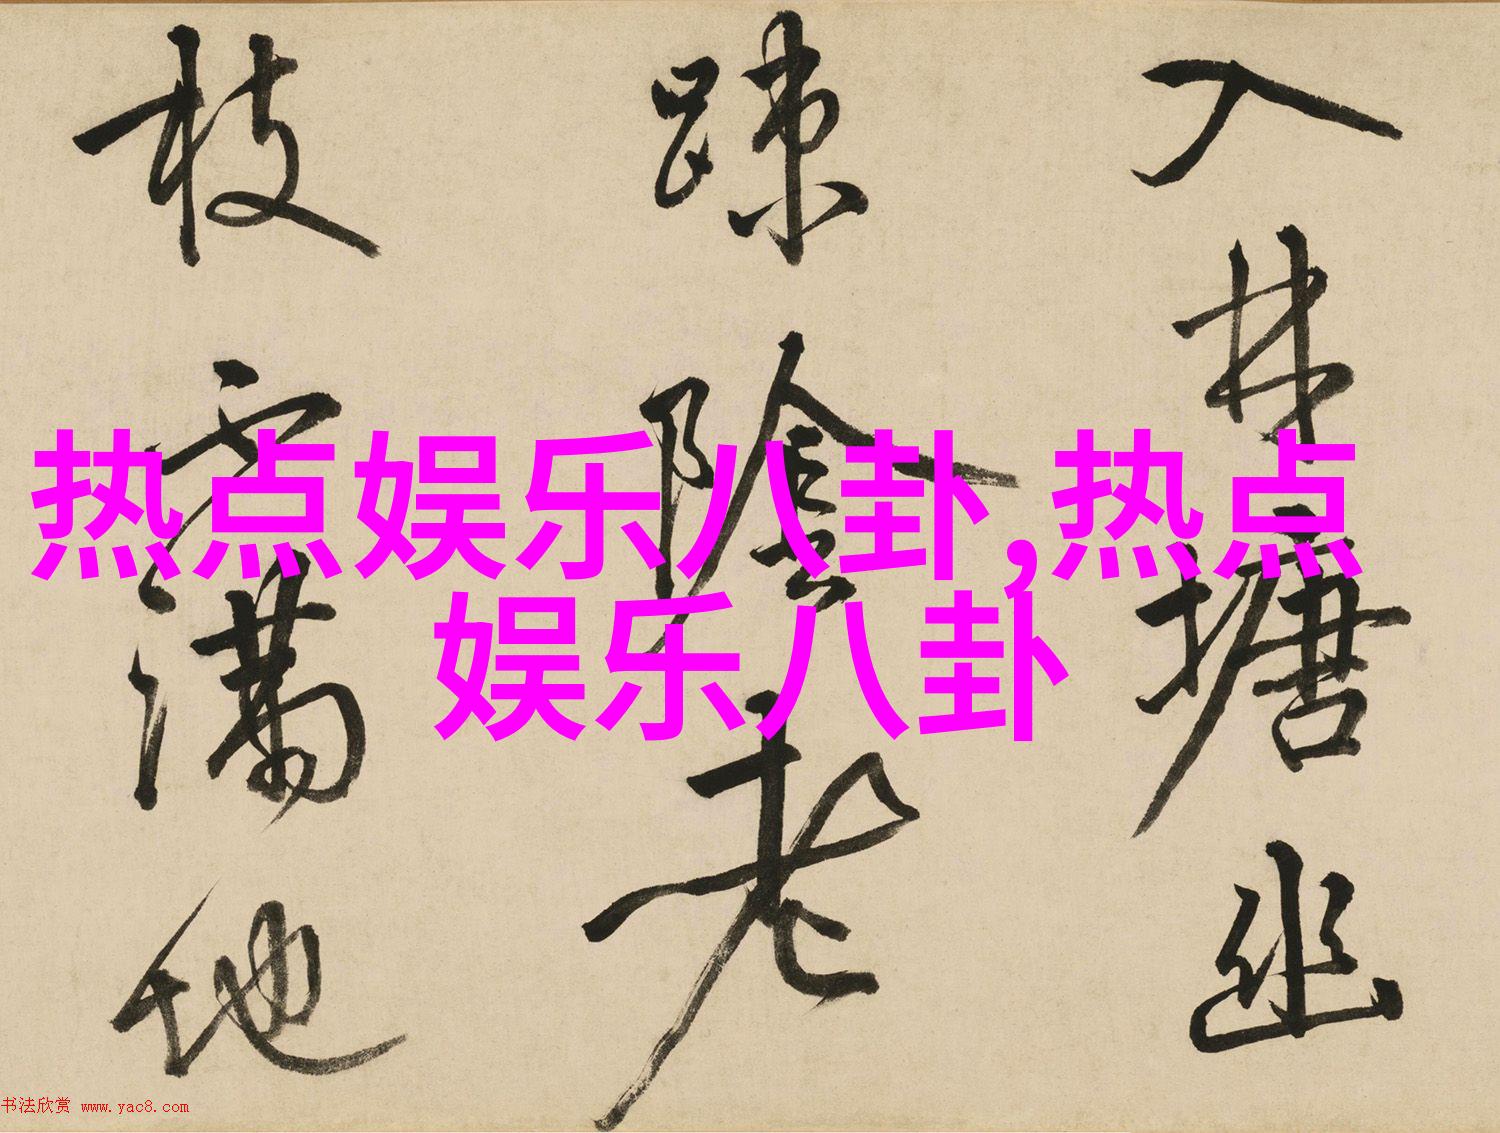 热点娱乐八卦,热点
娱乐八卦
入林塘幽
疎陰老
枝

满地
书法欣赏 www.yac8.com